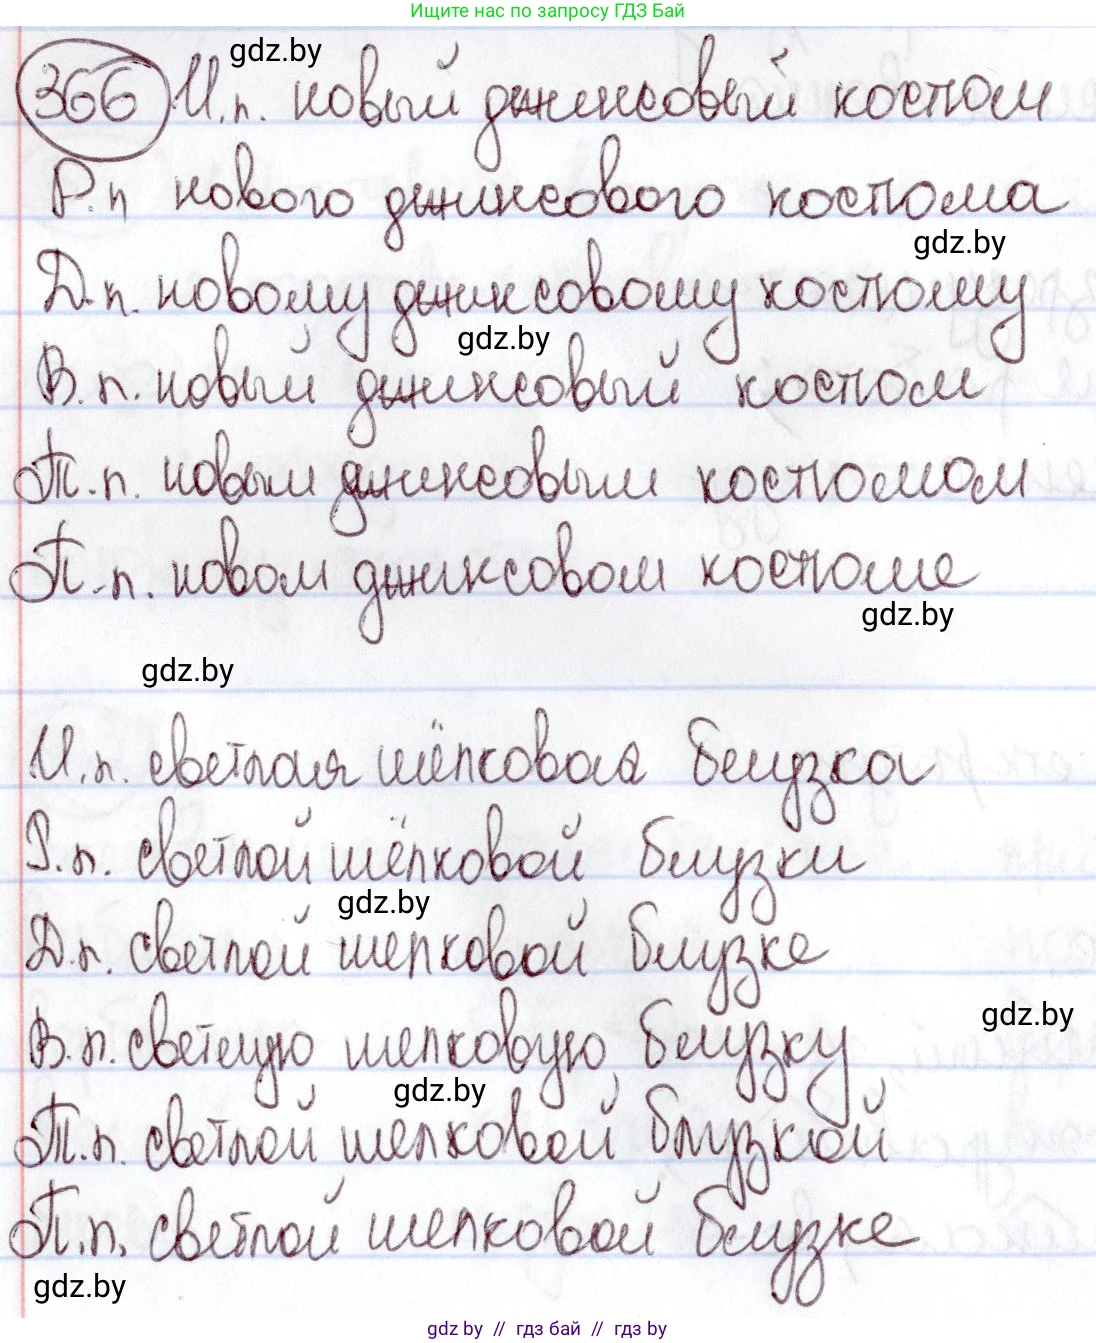 Ищите нас по запросу ГДЗ Бай
gdz.by
366 И.п. новый джинсовый костюм
Р.п нового джинсового костюма
gdz.by
Д.п. новому джинсовому костюму
gdz.by
В.п. новый джинсовый костюм
Т.п. новым джинсовым костюмом
П.п. новом джинсовом костюме
gdz.by
gdz.by
И.п. светлая шёлковая блузка
Р.п. светлой шёлковой блузки
gdz.by
Д.п. светлой шелковой блузке
gdz.by
В.п. светлую шелковую блузку
gdz.by
Т.п. светлой шелковой блузкой
П.п. светлой шелковой блузке
gdz.by
gdz.by // гдз бай // гдз by